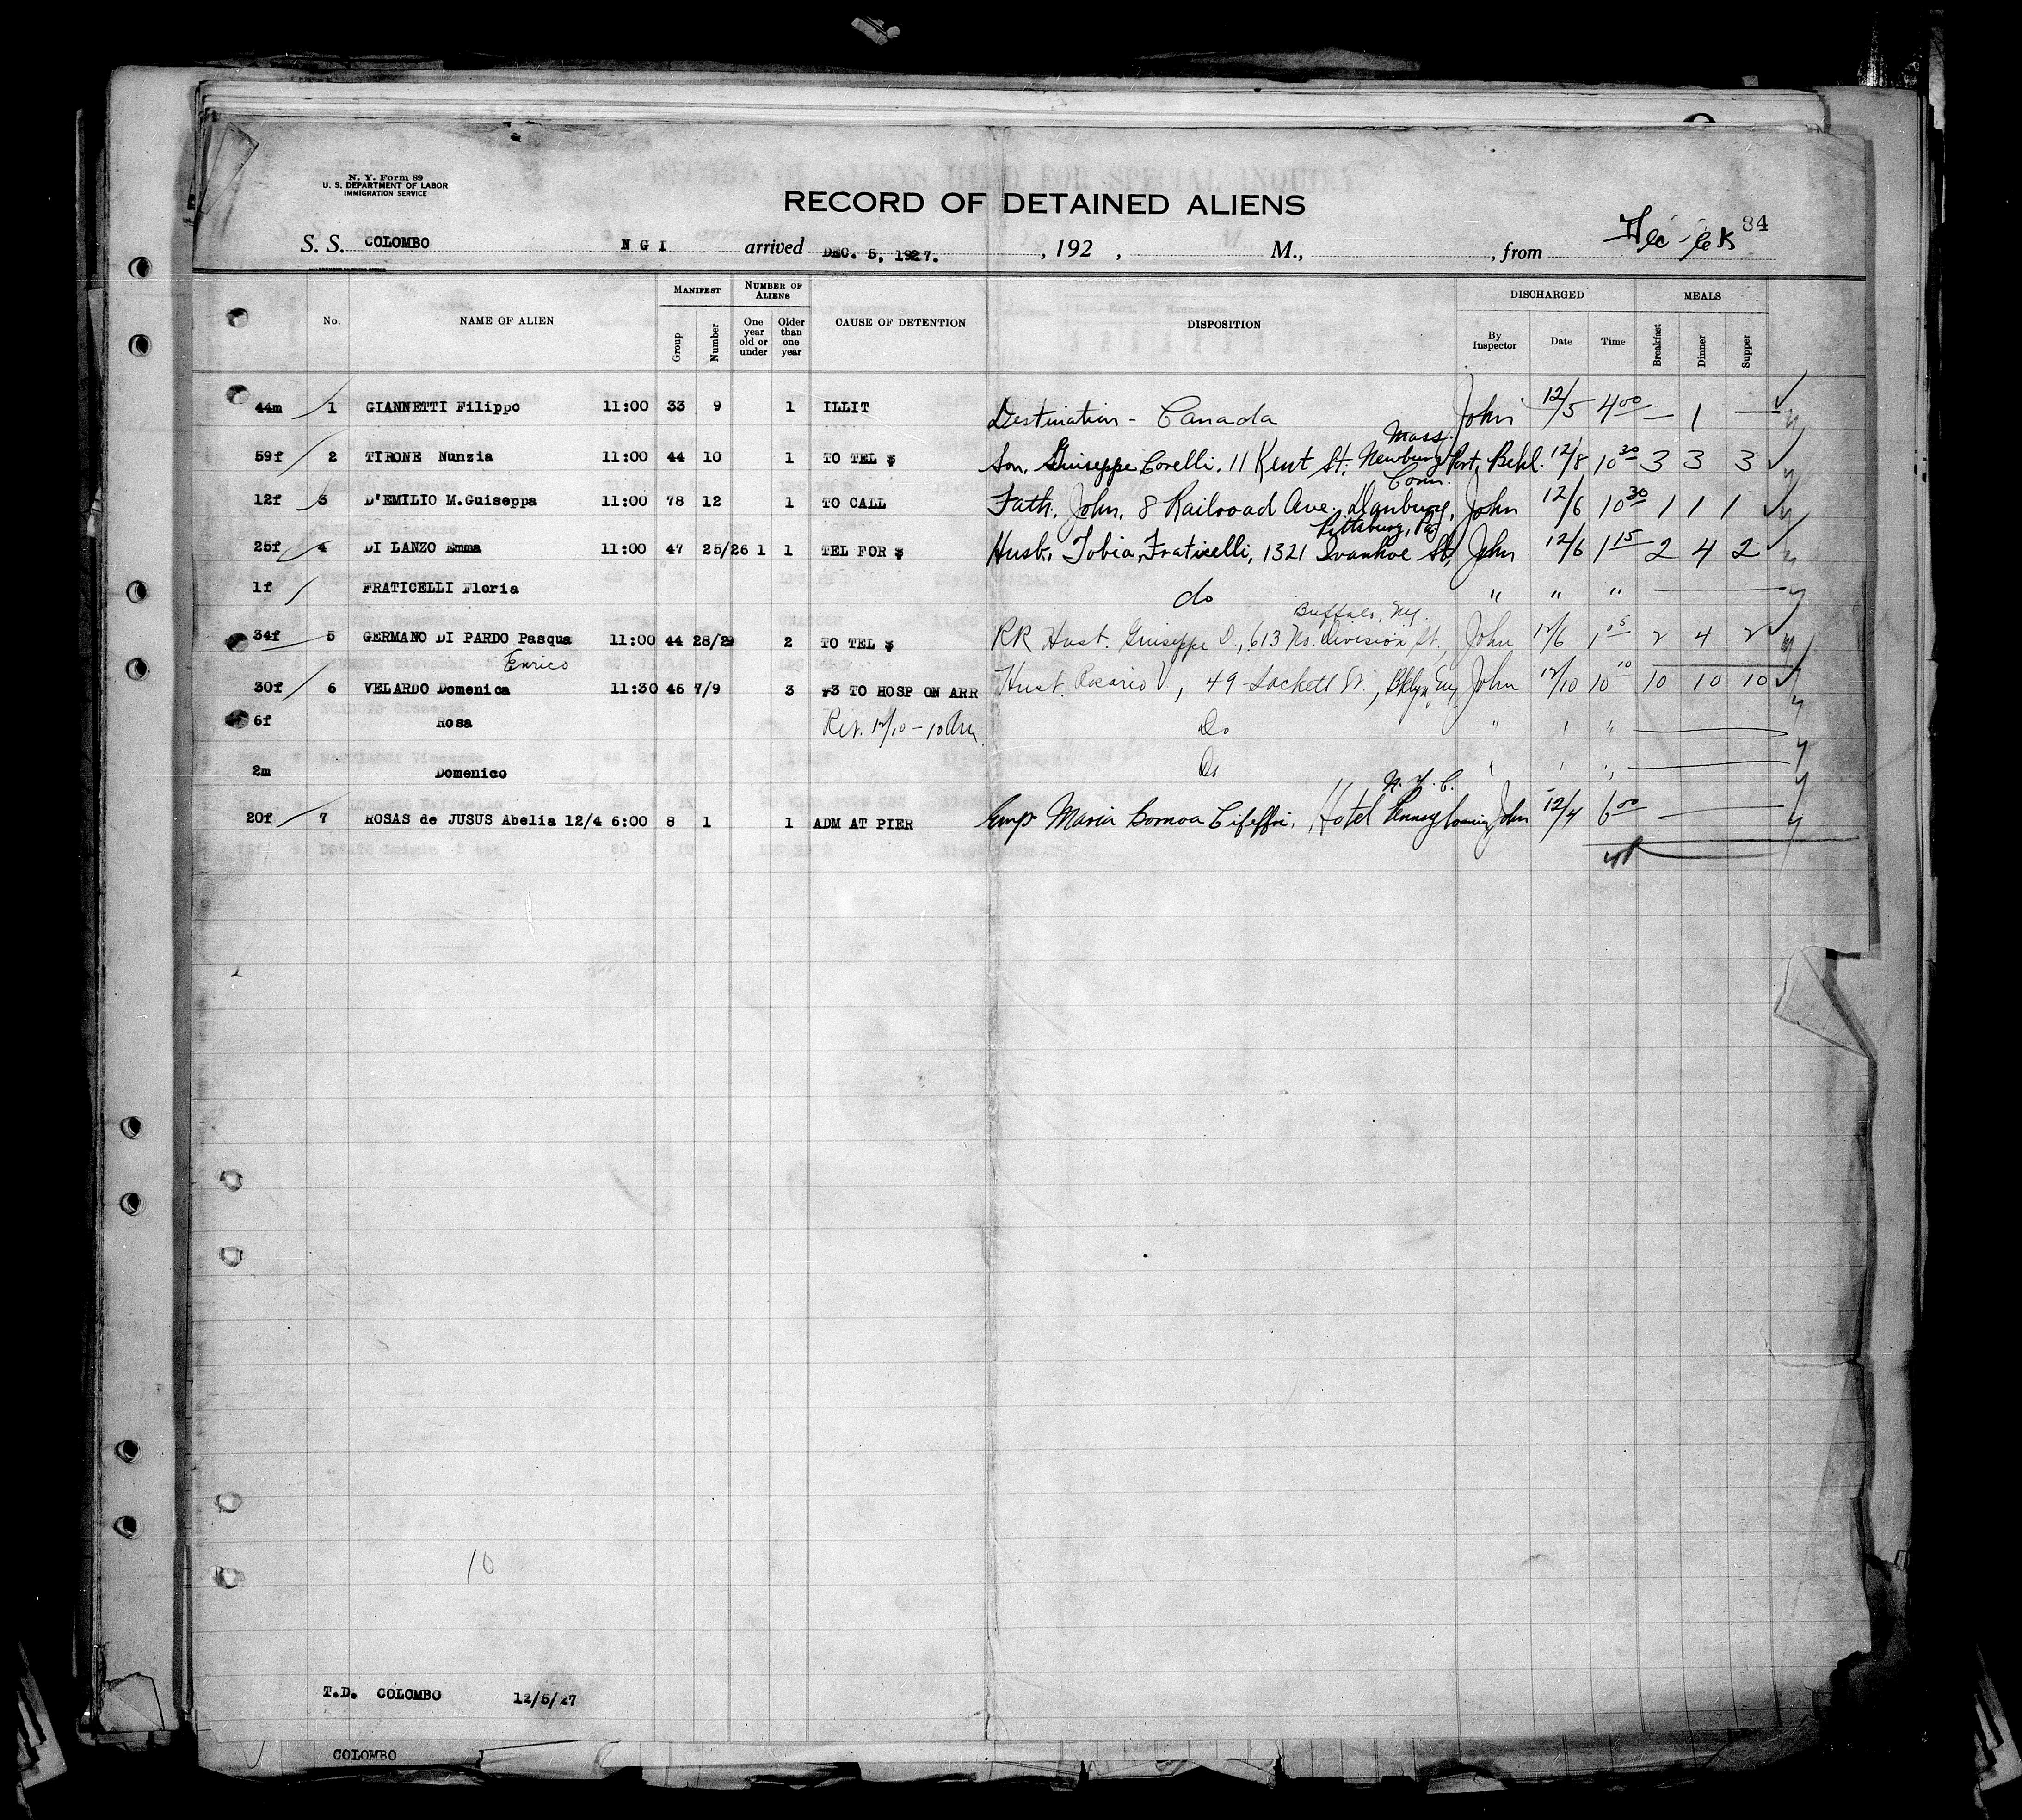 N. Y. Form 89
U. S. DEPARTMENT OF LABOR
IMMIGRATION SERVICE
RECORD OF DETAINED ALIENS
84
S. S. COLOMBO N G I arrived DEC. 5, 1927. , 192 , M., , from
No. NAME OF ALIEN MANIFEST Group Number NUMBER OF ALIENS One year old or under Older than one year CAUSE OF DETENTION DISPOSITION DISCHARGED By Inspector Date Time MEALS Breakfast Dinner Supper
44m 1 GIANNETTI Filippo 11:00 33 9 1 ILLIT Destination - Canada John 12/5 4 00 — 1 —
Mass.
59f 2 TIRONE Nunzia 11:00 44 10 1 TO TEL $ Son, Giuseppe Corelli, 11 Kent St. Newbury Port, Behl. 12/8 10 30 3 3 3
Conn.
12f 3 D'EMILIO M.Guiseppa 11:00 78 12 1 TO CALL Fath, John, 8 Railroad Ave. Danbury, John 12/6 10 30 1 1 1
Pittsburg, Pa
25f 4 DI LANZO Emma 11:00 47 25/26 1 1 TEL FOR $ Husb. Tobia Fraticelli, 1321 Ivanhoe St, John 12/6 1 15 2 4 2
1f FRATICELLI Floria do " " "
Buffalo, NY.
34f 5 GERMANO DI PARDO Pasqua 11:00 44 28/29 2 TO TEL $ RR Husb. Giuseppe D., 613 No. Division St., John 12/6 1 05 2 4 2
Enrico
30f 6 VELARDO Domenica 11:30 46 7/9 3 #3 TO HOSP ON ARR Husb. Rosario V., 49 Sackett St., Bklyn, NY John 12/10 10 10 10 10 10
6f Rosa Ret. 12/10 - 10 AM Do " " "
2m Domenico Do " " "
N. Y. C.
20f 7 ROSAS de JUSUS Abelia 12/4 6:00 8 1 1 ADM AT PIER Emp Maria Hotel Pennsylvania, John 12/4 6 00
10
T.D. COLOMBO 12/5/27
COLOMBO